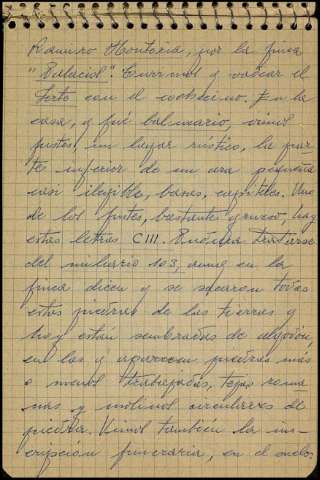 Ramiro Hontoria, por la finca
"Palacios". Cruzamos y vadear el
Jerte con el cochecino. En la
casa, q fué balneario, vimos
fustes, un lagar rústico, la par
te inferior de un ara pequeña
casi ilegible, bases, capiteles. Uno
de los fustes, bastante grueso, hay
estas letras CIII. Pudiera tratarse
del miliario 103, aunq en la
finca dicen q se sacaron todas
estas piedras de las tierras q
hoy están sembradas de algodón,
en las q aparecen piedras más
o menos trabajadas, tejas roma
nas y molinos circulares de
piedra. Vimos tambien la ins-
cripción funeraria, en el suelo,